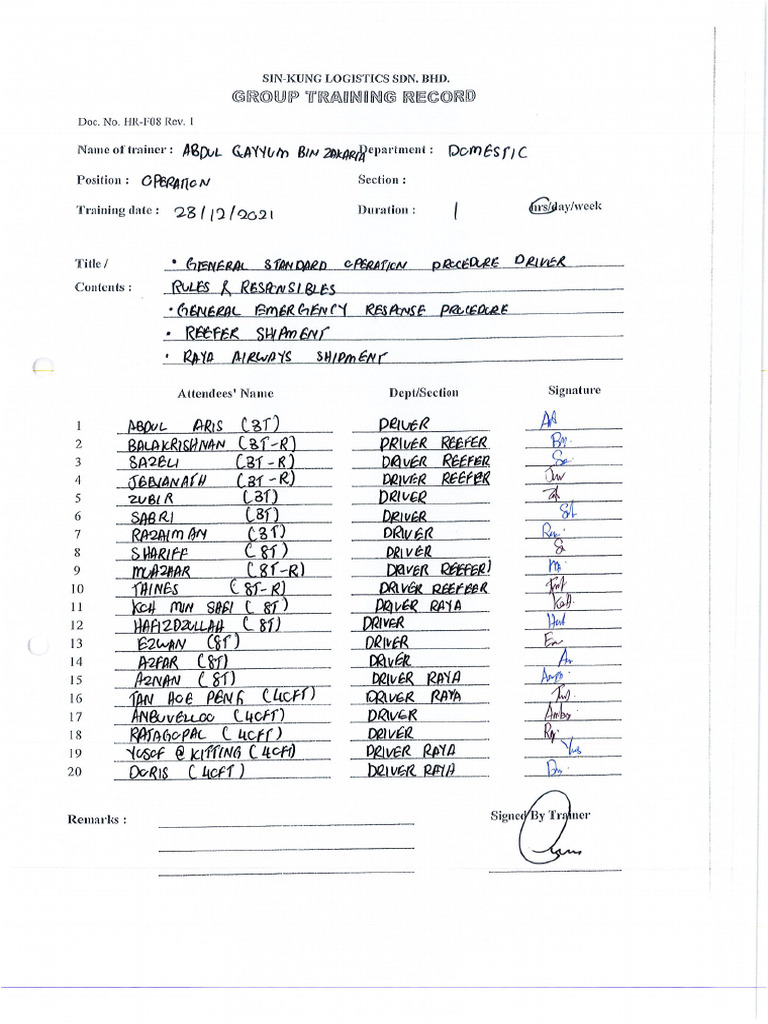 SIN-KUNG LOGISTICS SDN. BHD.
GROUP TRAINING RECORD
Doc. No. HR-F08 Rev. 1
Name of trainer : ABDUL GAYYUM BIN ZAKARIA Department : DOMESTIC
Position : OPERATION Section :
Training date : 28/12/2021 Duration : 1 hrs/day/week
Title / • GENERAL STANDARD OPERATION PROCEDURE DRIVER
Contents : RULES & RESPONSIBLES
• GENERAL EMERGENCY RESPONSE PROCEDURE
• REEFER SHIPMENT
• RAYA AIRWAYS SHIPMENT
Attendees' Name Dept/Section Signature
1 ABDUL ARIS (3T) DRIVER
2 BALAKRISHNAN (3T-R) DRIVER REEFER
3 SAZELI (3T-R) DRIVER REEFER
4 JEEVANATH (3T-R) DRIVER REEFER
5 ZUBIR (3T) DRIVER
6 SABRI (3T) DRIVER
7 RAZAIMAN (3T) DRIVER
8 SHARIFF (8T) DRIVER
9 MUAZHAR (8T-R) DRIVER REEFER
10 THINES (8T-R) DRIVER REEFEAR
11 KOH MIN SAFI (8T) DRIVER RAYA
12 HAFIZDZULLAH (8T) DRIVER
13 EZWAN (8T) DRIVER
14 AZFAR (8T) DRIVER
15 AZNAN (8T) DRIVER RAYA
16 TAN HOE PENG (40FT) DRIVER RAYA
17 ANBUVELLOO (40FT) DRIVER
18 RAJAGOPAL (40FT) DRIVER
19 YUSOF @ KITTING (40FT) DRIVER RAYA
20 DORIS (40FT) DRIVER RAYA
Remarks : Signed By Trainer